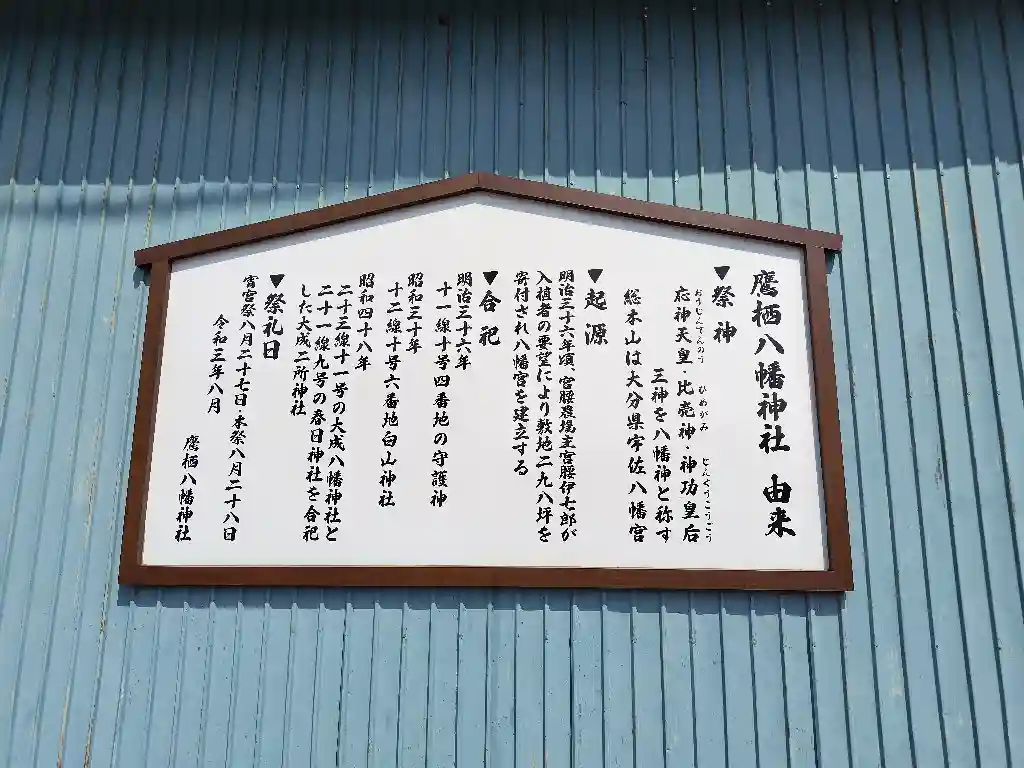 鷹栖八幡神社 由来
▼祭神
応神天皇 比売神・神功皇后
おうじんてんのう ひめがみ じんぐうこうごう
三神を八幡神と称す
総本山は大分県宇佐八幡宮
▼起源
明治三十六年頃、宮腰農場主宮腰伊七郎が
入植者の要望により敷地二九八坪を
寄付され八幡宮を建立する
▼合祀
明治三十六年
十一線十号四番地の守護神
昭和三十年
十二線十号六番地白山神社
昭和四十八年
二十三線十一号の大成八幡神社と
二十一線九号の春日神社を合祀
した大成二所神社
▼祭礼日
宵宮祭八月二十七日・本祭八月二十八日
令和三年八月
鷹栖八幡神社